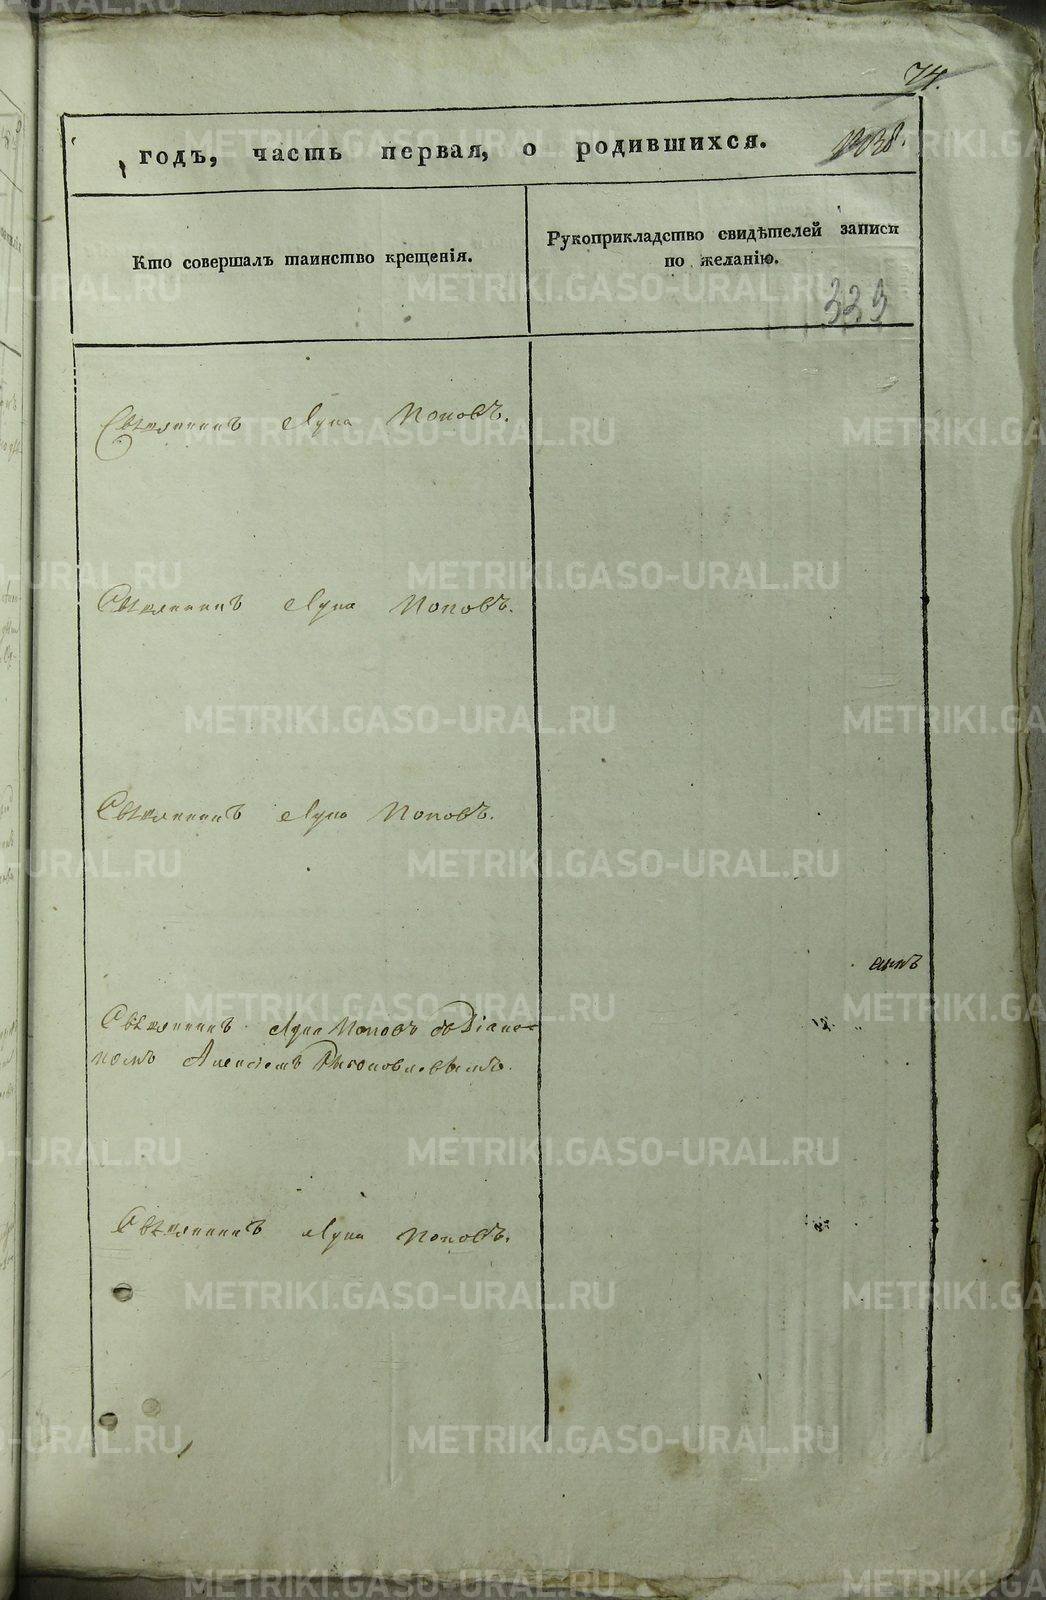 74.
годъ, часть первая, о родившихся.
1038.
Кто совершалъ таинство крещенія.
Рукоприкладство свидѣтелей записи
по желанію.
339
Священникъ Лука Поповъ.
Священникъ Лука Поповъ.
Священникъ Лука Поповъ.
Священникъ Лука Поповъ съ Діако-
номъ Алексіемъ
Священникъ Лука Поповъ.
METRIKI.GASO-URAL.RU